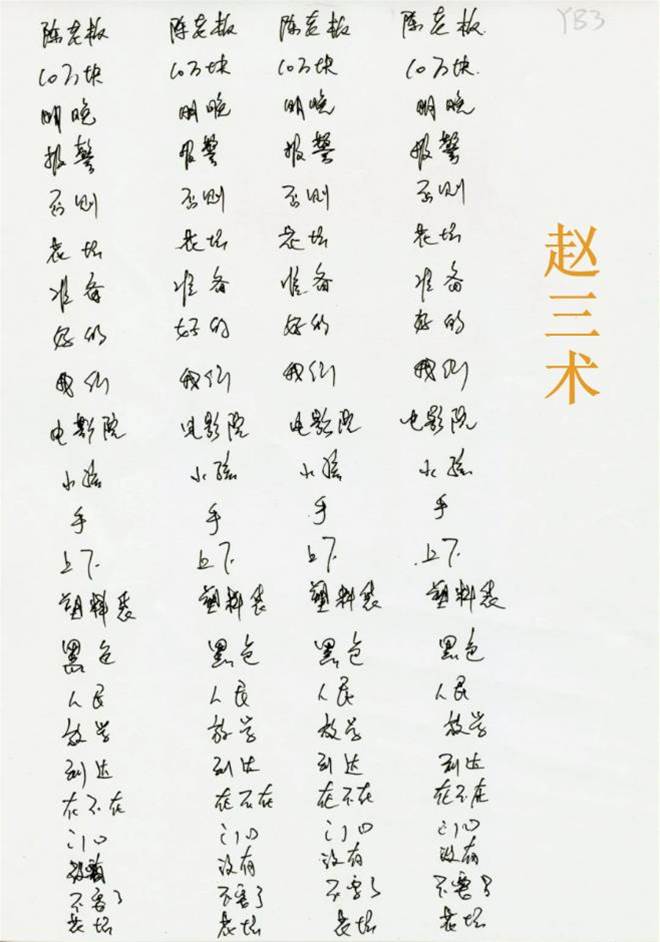 YB3
陈老板 陈老板 陈老板 陈老板
10万块 10万块 10万块 10万块
明晚 明晚 明晚 明晚
报警 报警 报警 报警
否则 否则 否则 否则
老地 老地 老地 老地
准备 准备 准备 准备
好的 好的 好的 好的
我们 我们 我们 我们
电影院 电影院 电影院 电影院
小孩 小孩 小孩 小孩
手 手 手 手
上下 上下 上下 上下
塑料袋 塑料袋 塑料袋 塑料袋
黑色 黑色 黑色 黑色
人民 人民 人民 人民
放学 放学 放学 放学
到达 到达 到达 到达
在不在 在不在 在不在 在不在
门口 门口 门口 门口
没有 没有 没有
不害了 不害了 不害了 不害了
赵三术